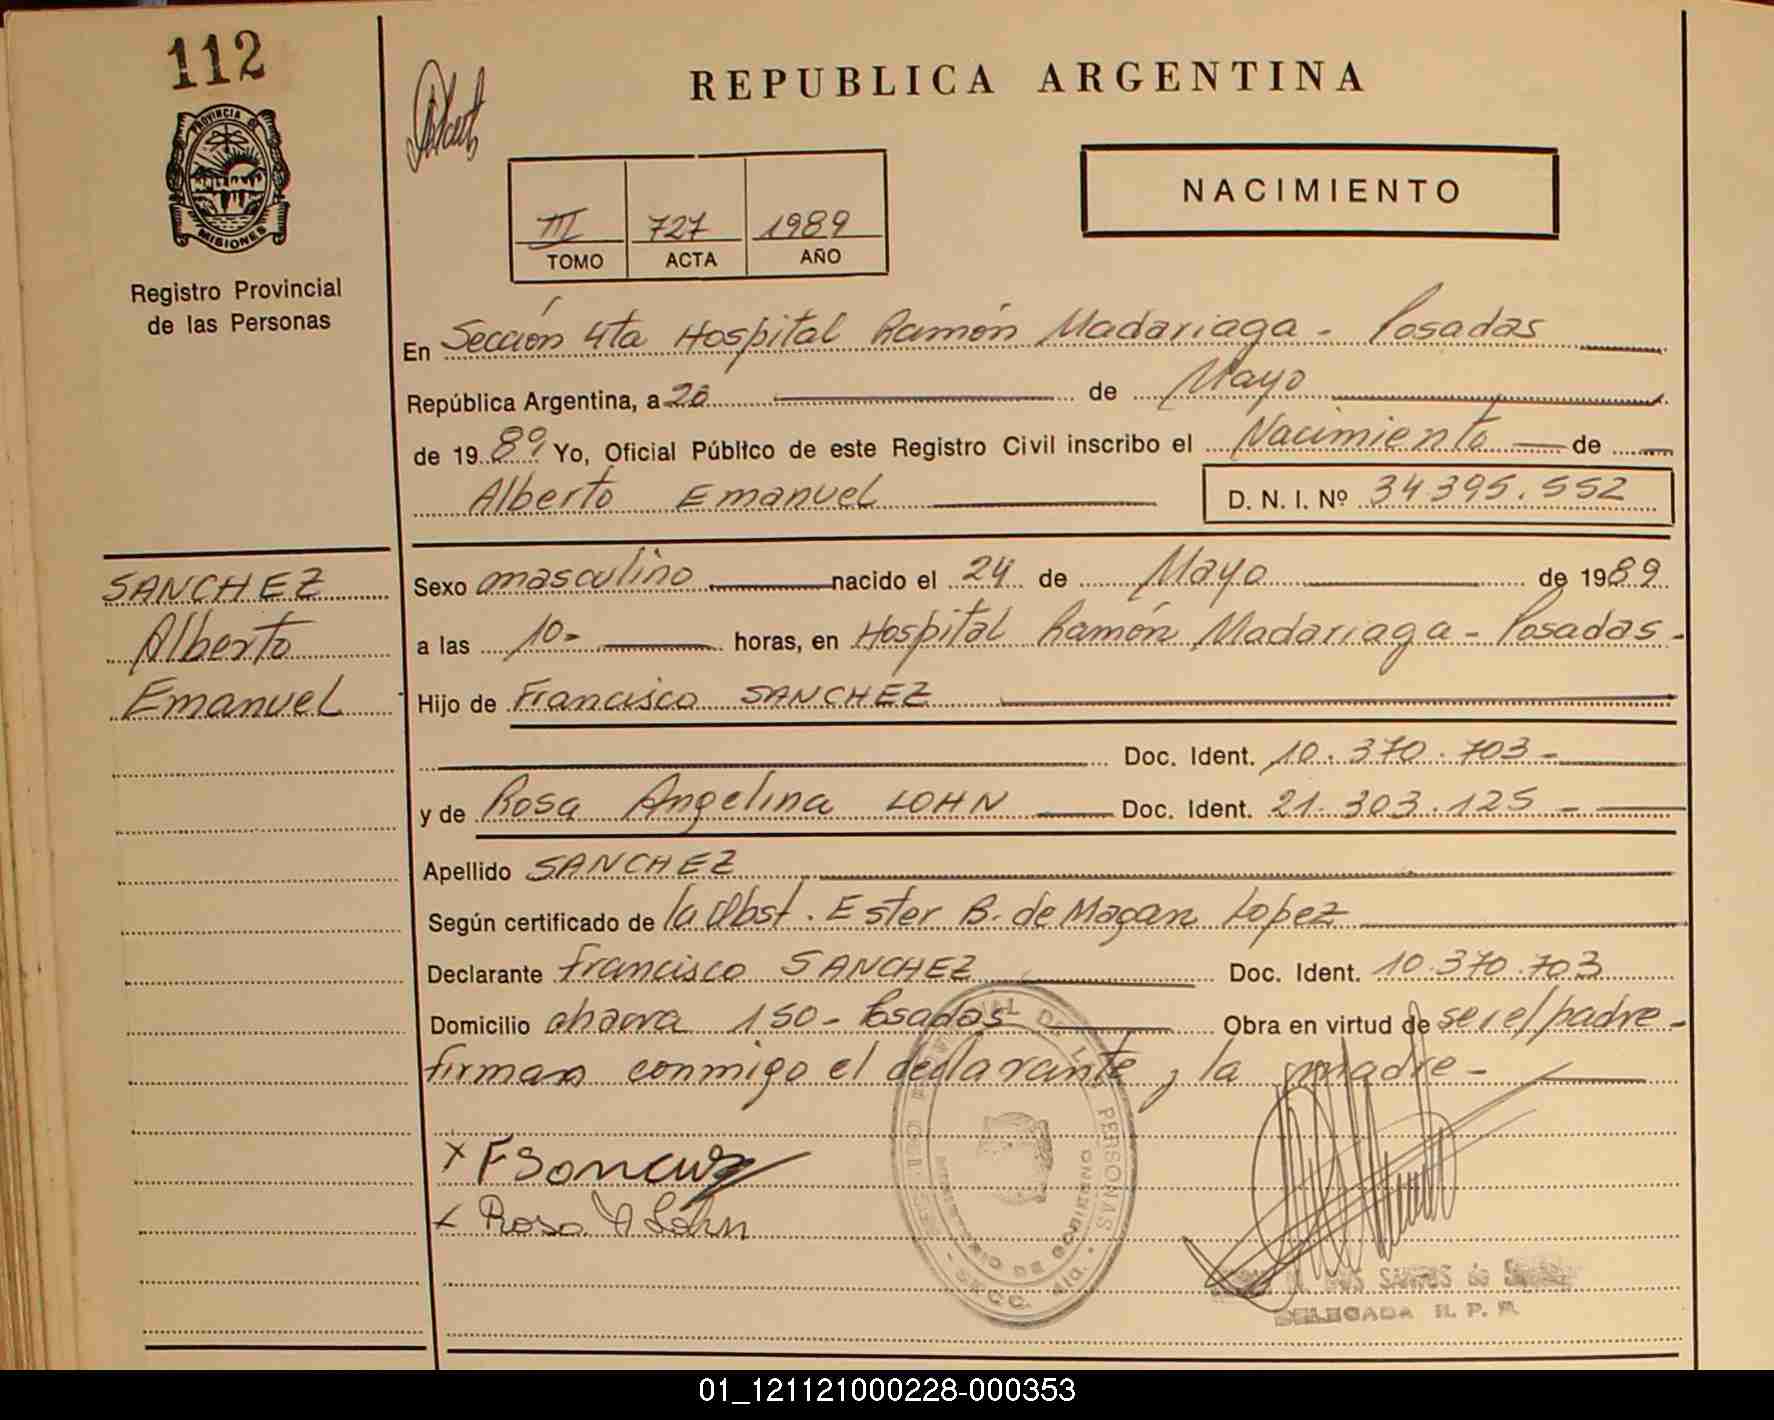 112
REPUBLICA ARGENTINA
PROVINCIA DE
MISIONES
Registro Provincial
de las Personas
III 727 1989
TOMO ACTA AÑO
NACIMIENTO
En Sección 4ta Hospital Ramón Madariaga - Posadas
República Argentina, a 26 de Mayo
de 1989 Yo, Oficial Público de este Registro Civil inscribo el Nacimiento de
Alberto Emanuel D. N. I. Nº 34395.552
SANCHEZ
Alberto
Emanuel
Sexo masculino nacido el 24 de Mayo de 1989
a las 10- horas, en Hospital Ramón Madariaga - Posadas -
Hijo de Francisco SANCHEZ
Doc. Ident. 10.370.703-
y de Rosa Angelina LOHN Doc. Ident. 21.303.125 -
Apellido SANCHEZ
Según certificado de la Obst. Ester B. de Magan Lopez
Declarante Francisco SANCHEZ Doc. Ident. 10.370.703
Domicilio chacra 150 - Posadas Obra en virtud de ser el padre -
firman conmigo el declarante y la madre -
x F Sanchez
x Rosa A Lohn
DE LAS PERSONAS
MINISTERIO DE GOBIERNO
DOS SANTOS de
DELEGADA R. P. P.
01_121121000228-000353